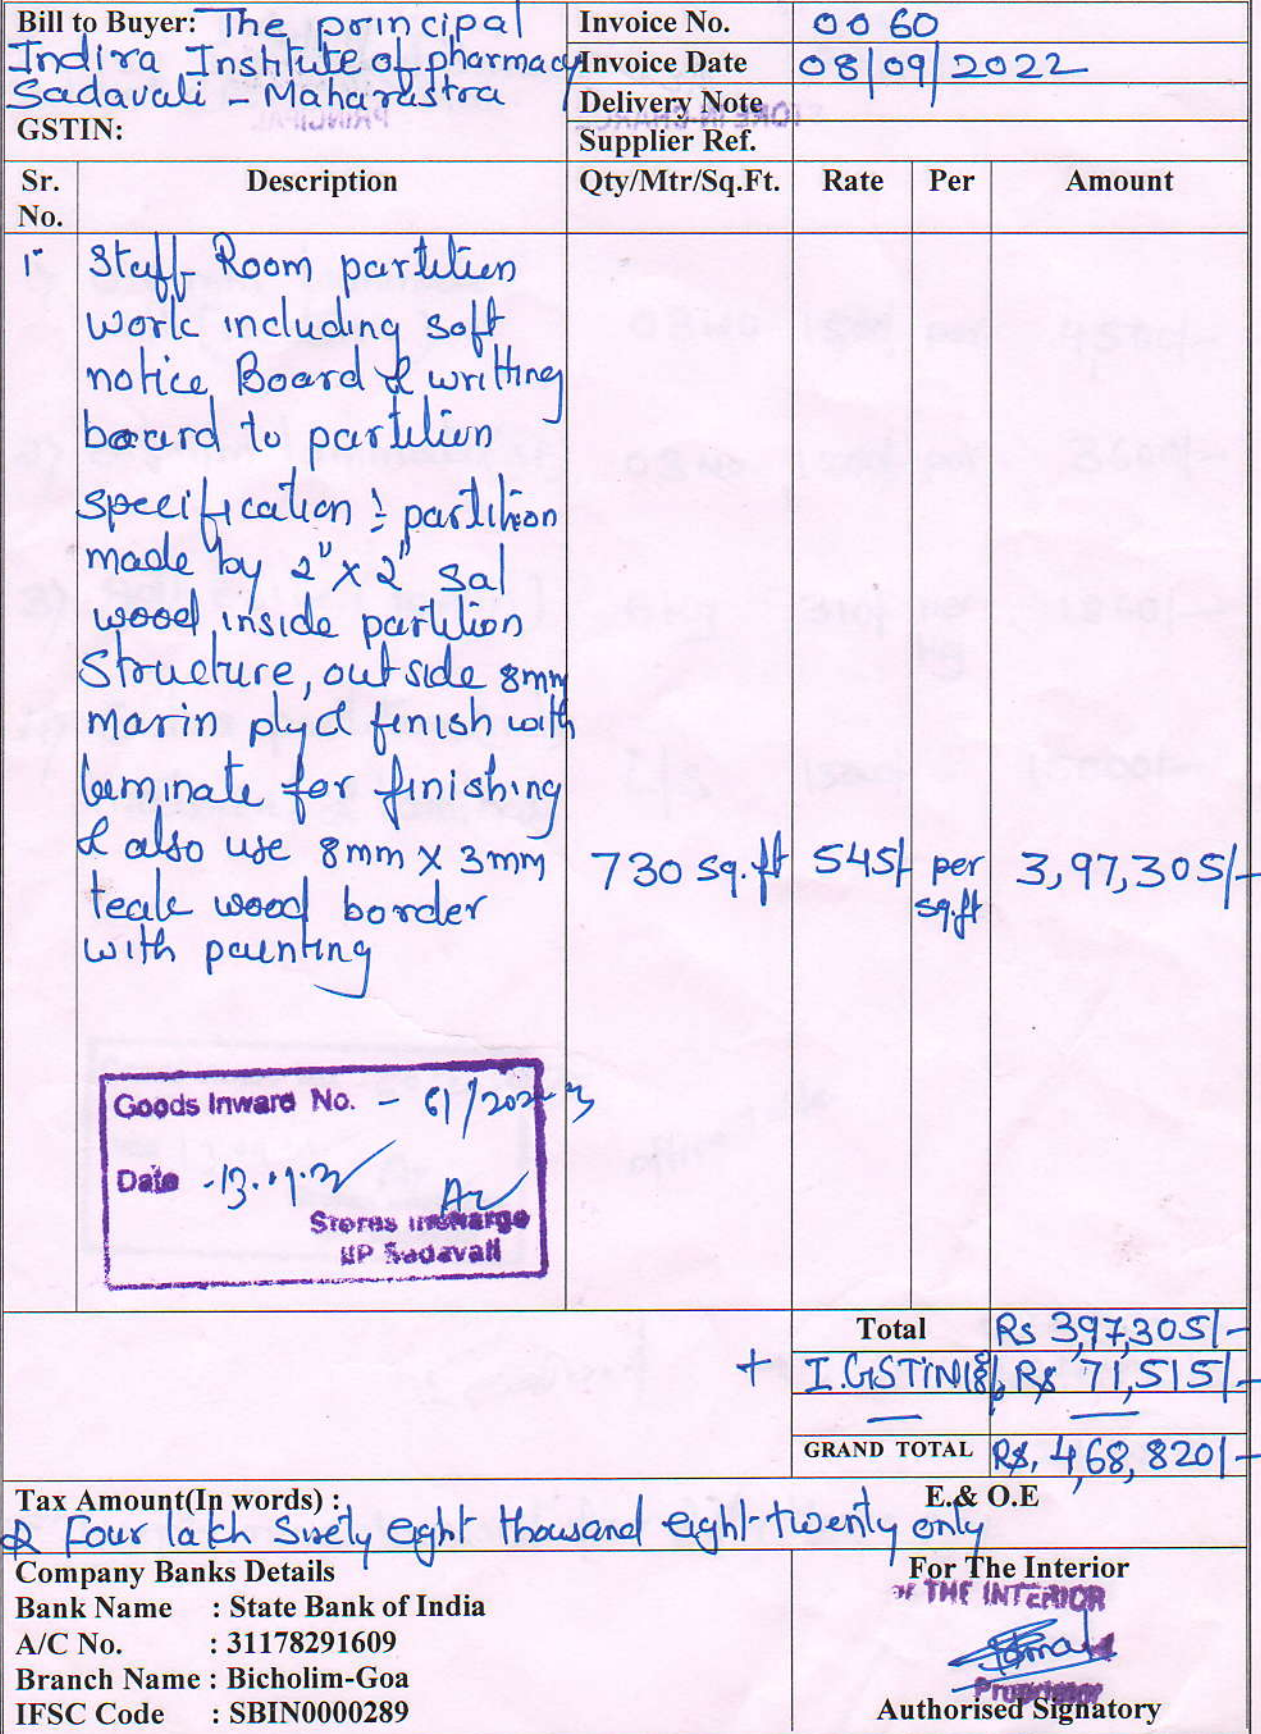 Bill to Buyer: The principal
Indira Institute of pharmacy
Sadavali - Maharastra
GSTIN:
Invoice No. 0060
Invoice Date 08/09/2022
Delivery Note
Supplier Ref.
Sr. No. Description Qty/Mtr/Sq.Ft. Rate Per Amount
1. Staff Room partition
work including soft
notice Board & writting
board to partition
specification : partition
made by 2"x2" sal
wood inside partition
structure, outside 8mm
marin plyd finish with
laminate for finishing
& also use 8mm x 3mm 730 sq.ft 545/- per sq.ft 3,97,305/-
teak wood border
with painting
Goods Inward No. - 61/2022-3
Date -13.
Stores Incharge
IIP Sadavali
Total Rs 3,97,305/-
+ I.GSTIN18% Rs 71,515/-
GRAND TOTAL Rs. 4,68,820/-
Tax Amount(In words) : E.& O.E
Four lakh Sixety eight thousand eight-twenty only
Company Banks Details
Bank Name : State Bank of India
A/C No. : 31178291609
Branch Name : Bicholim-Goa
IFSC Code : SBIN0000289
For The Interior
THE INTERIOR
Proprietor
Authorised Signatory